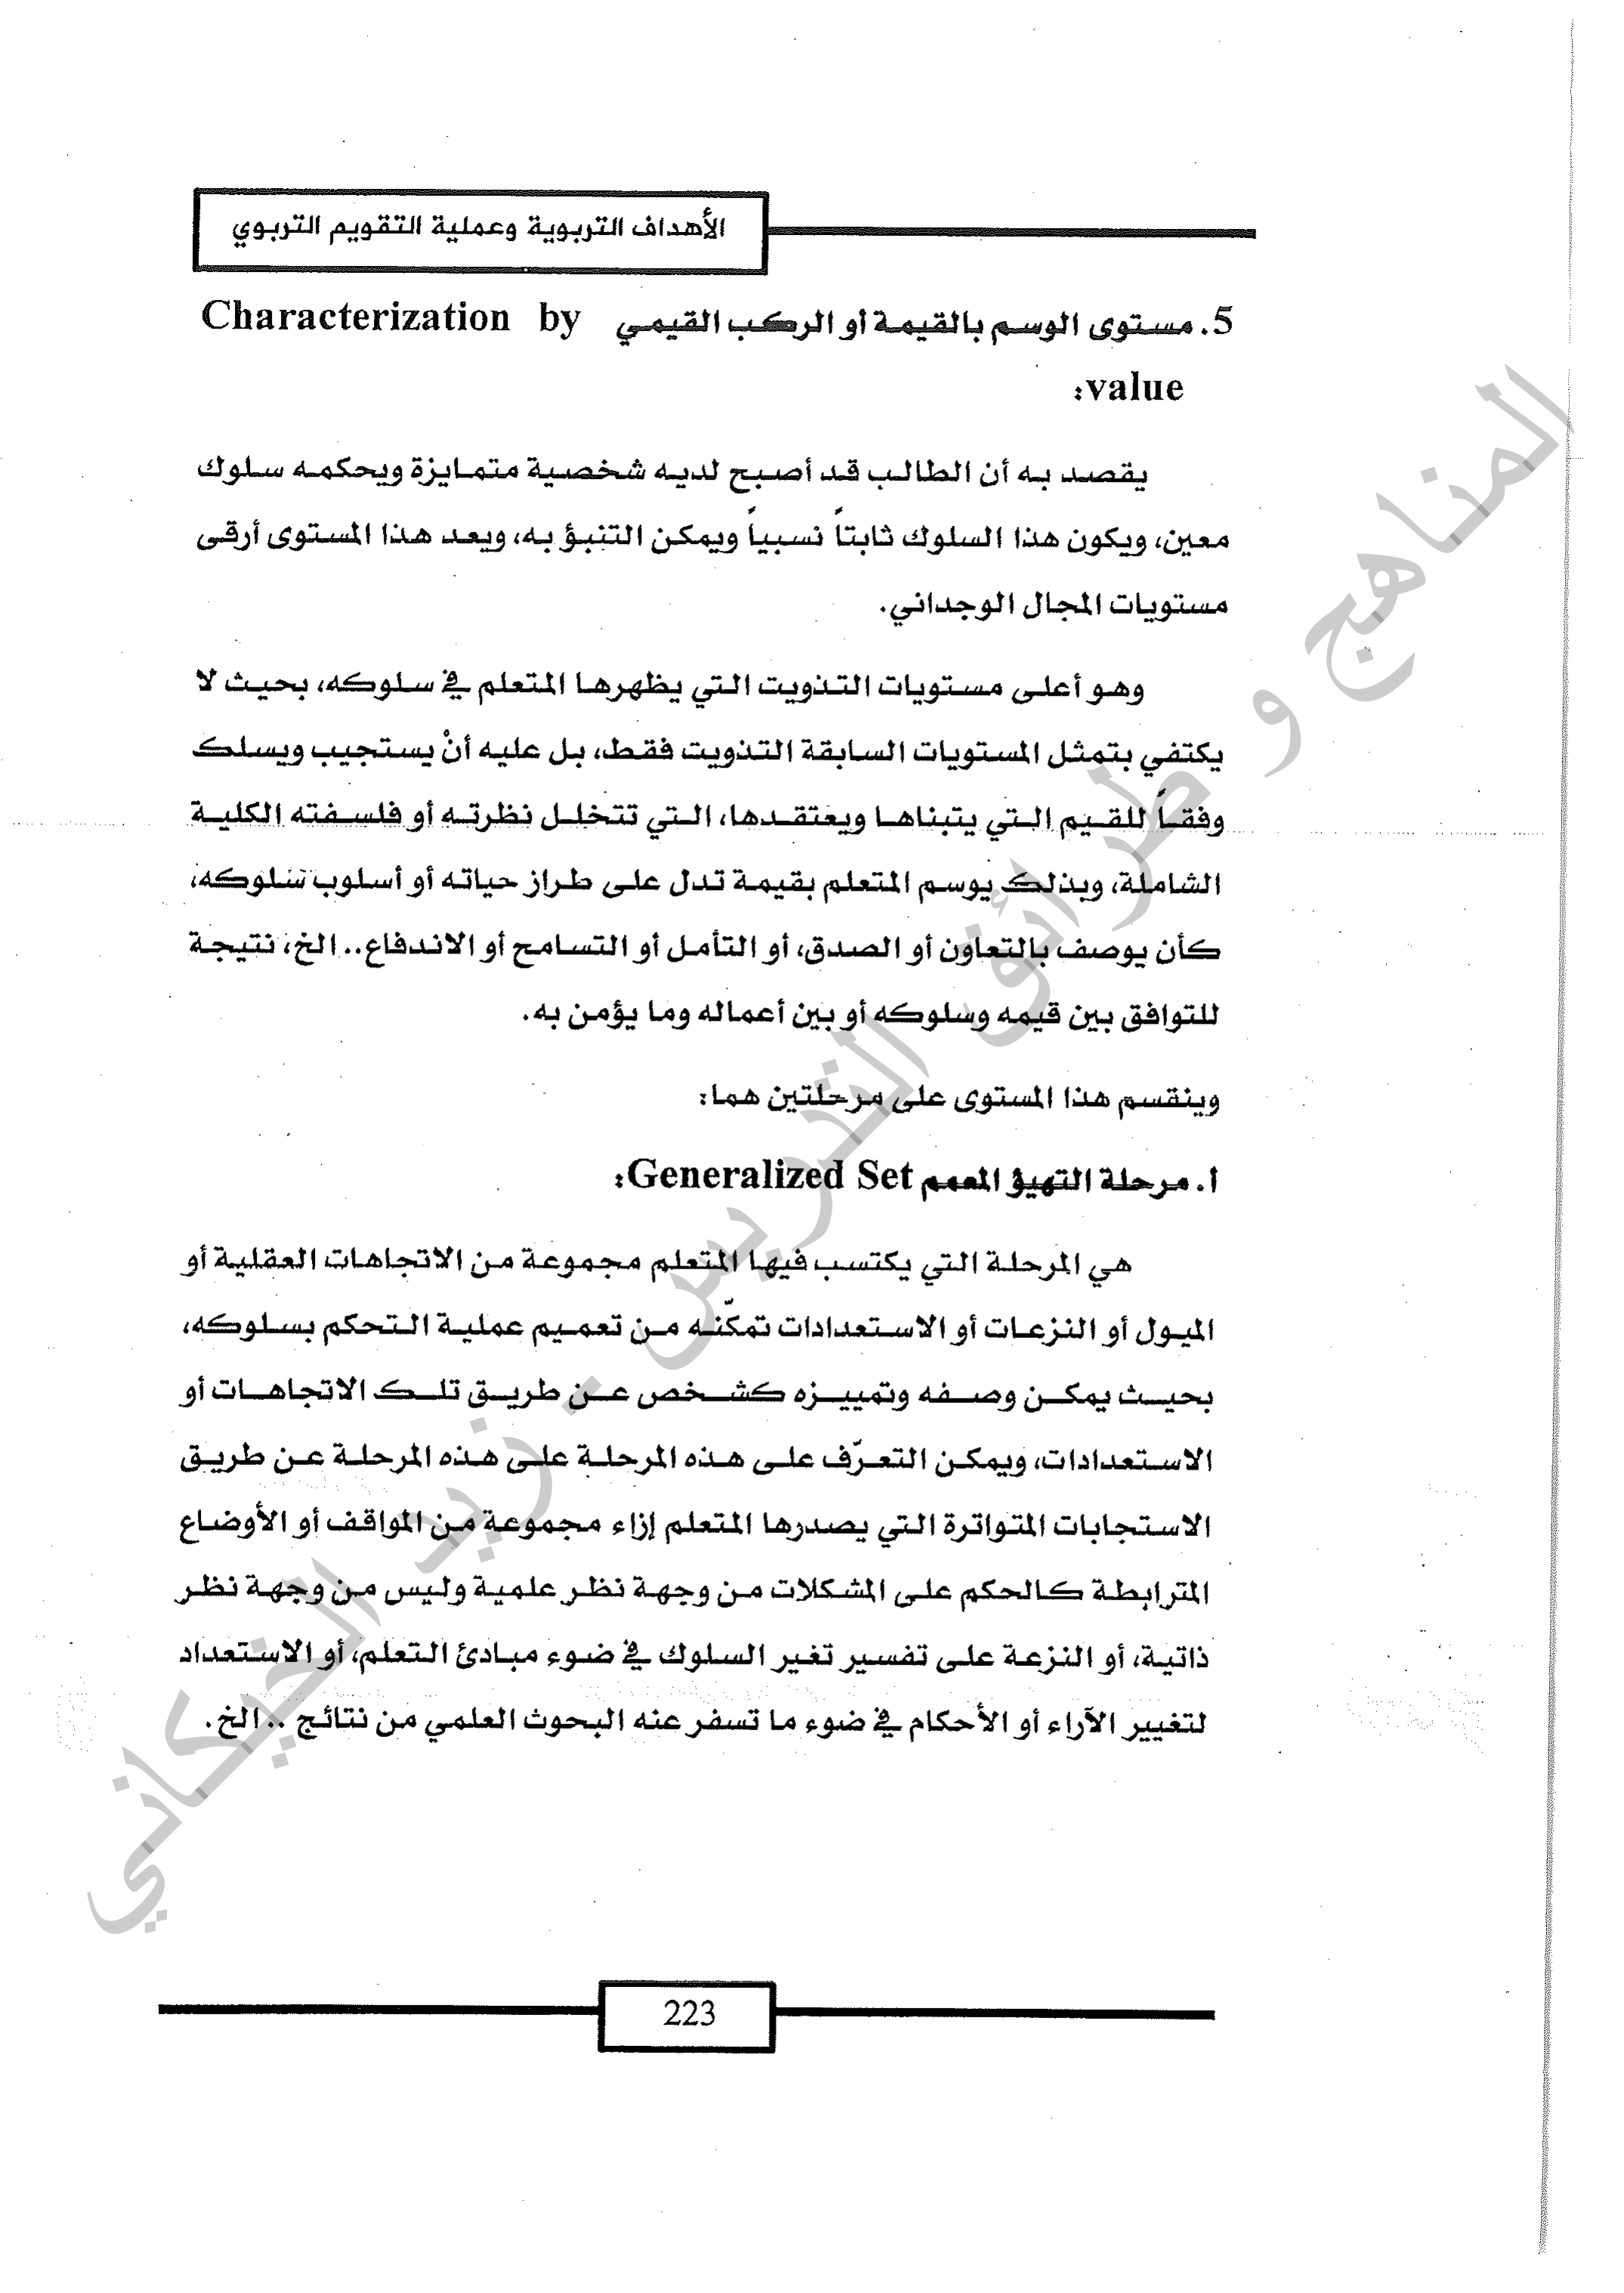 الأهداف التربوية وعملية التقويم التربوي
5. مستوى الوسم بالقيمة أو الركب القيمي Characterization by
value:
يقصد به أن الطالب قد أصبح لديه شخصية متمايزة ويحكمه سلوك
معين، ويكون هذا السلوك ثابتاً نسبياً ويمكن التنبؤ به، ويعد هذا المستوى أرقى
مستويات المجال الوجداني.
وهو أعلى مستويات التذويت التي يظهرها المتعلم في سلوكه، بحيث لا
يكتفي بتمثل المستويات السابقة التذويت فقط، بل عليه أنْ يستجيب ويسلك
وفقاً للقيم التي يتبناها ويعتقدها، التي تتخلل نظرته أو فلسفته الكلية
الشاملة، وبذلك يوسم المتعلم بقيمة تدل على طراز حياته أو أسلوب سلوكه،
كأن يوصف بالتعاون أو الصدق، أو التأمل أو التسامح أو الاندفاع.. الخ، نتيجة
للتوافق بين قيمه وسلوكه أو بين أعماله وما يؤمن به.
وينقسم هذا المستوى على مرحلتين هما:
أ. مرحلة التهيؤ المعمم Generalized Set:
هي المرحلة التي يكتسب فيها المتعلم مجموعة من الاتجاهات العقلية أو
الميول أو النزعات أو الاستعدادات تمكّنه من تعميم عملية التحكم بسلوكه،
بحيث يمكن وصفه وتمييزه كشخص عن طريق تلك الاتجاهات أو
الاستعدادات، ويمكن التعرّف على هذه المرحلة على هذه المرحلة عن طريق
الاستجابات المتواترة التي يصدرها المتعلم إزاء مجموعة من المواقف أو الأوضاع
المترابطة كالحكم على المشكلات من وجهة نظر علمية وليس من وجهة نظر
ذاتية، أو النزعة على تفسير تغير السلوك في ضوء مبادئ التعلم، أو الاستعداد
لتغيير الآراء أو الأحكام في ضوء ما تسفر عنه البحوث العلمي من نتائج .. الخ.
223
المناهج و طرائق التدريس - زيد الخيكاني